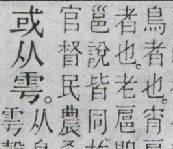 鳥者也。宵
者也。老扈
邕說皆同
官督民農
或从雩。
从
雩